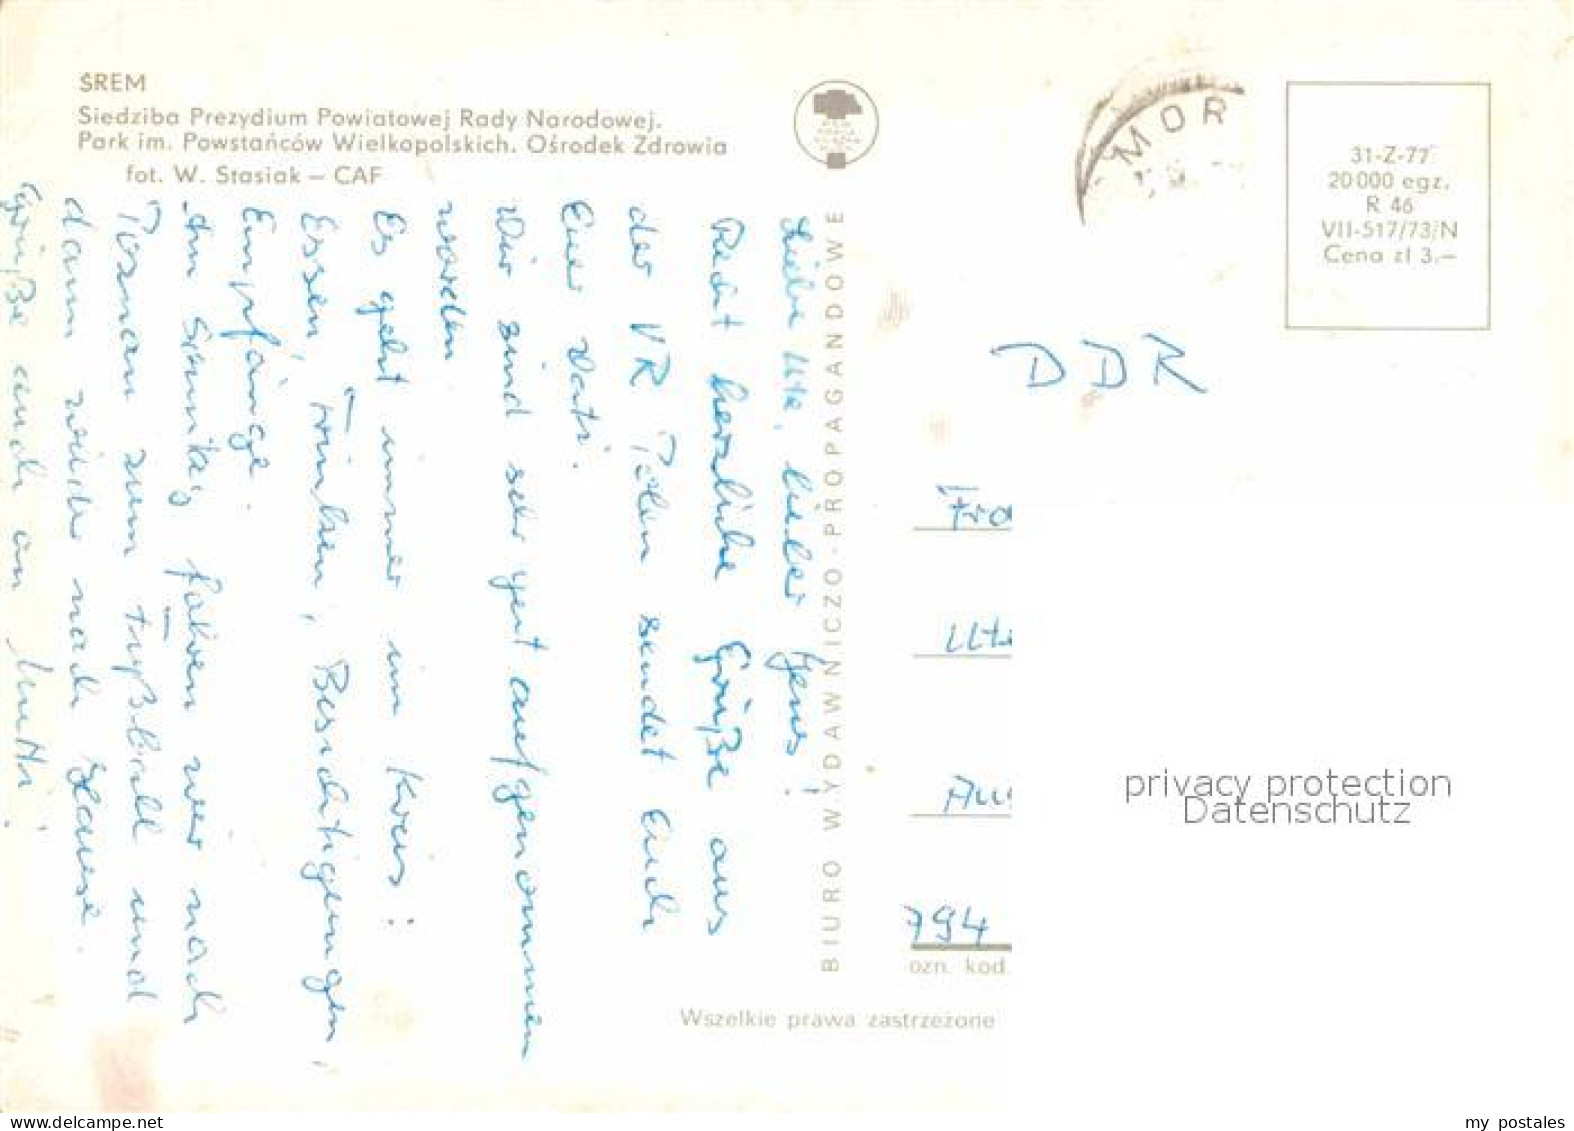 ŚREM
Siedziba Prezydium Powiatowej Rady Narodowej.
Park im. Powstańców Wielkopolskich. Ośrodek Zdrowia
fot. W. Stasiak – CAF
MOR
31-Z-77
20 000 egz.
R 46
VII-517/73/N
Cena zł 3.–
BIURO WYDAWNICZO-PROPAGANDOWE
Liebe Ute, lieber Jens!
Recht herzliche Grüße aus
der VR Polen sendet Euch
Euer Vati.
Wir sind sehr gut aufgenommen
worden
Es geht immer im Kreis:
Essen, Trinken, Besichtigungen,
Empfänge.
Am Sonntag fahren wir nach
Poznan zum Fußball und
dann wieder nach Hause.
Grüße auch an Mutti.
DDR
Fra
Ute
794
ozn. kod.
Wszelkie prawa zastrzeżone
privacy protection
Datenschutz
www.delcampe.net
my_postales